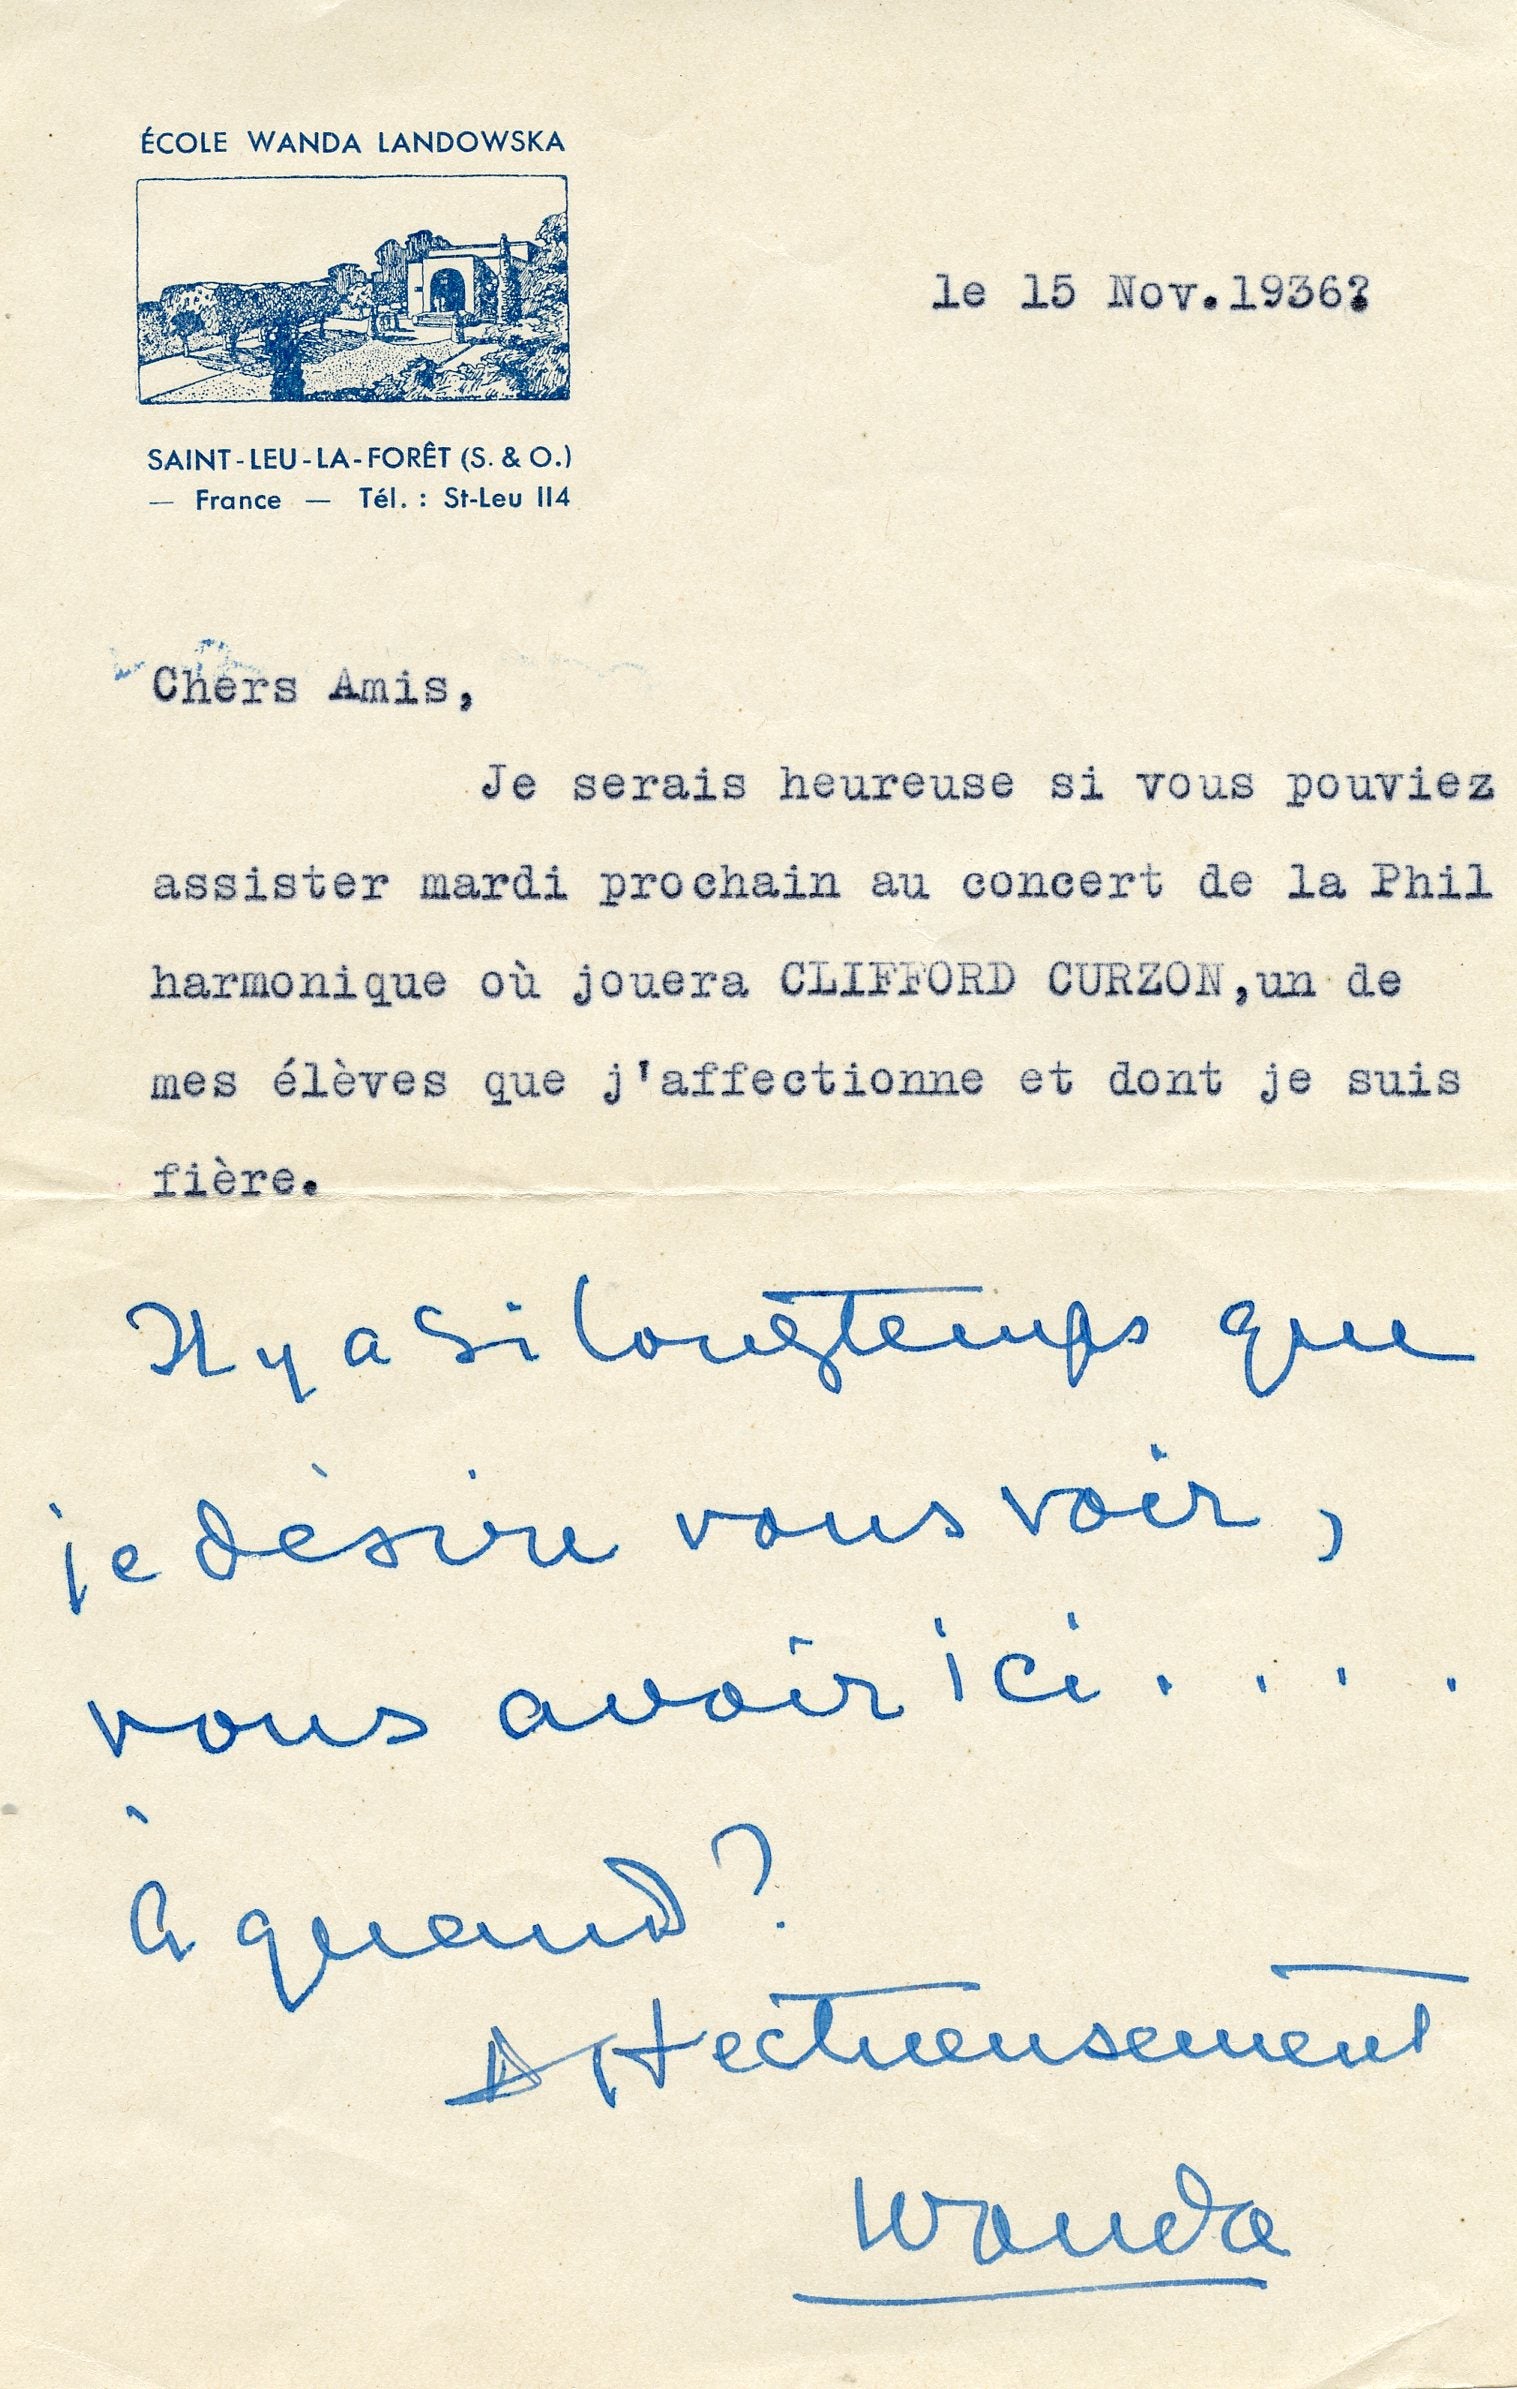 ÉCOLE WANDA LANDOWSKA
SAINT-LEU-LA-FORÊT (S. & O.)
— France — Tél. : St-Leu 114
le 15 Nov.1936?
Chers Amis,
Je serais heureuse si vous pouviez
assister mardi prochain au concert de la Phil
harmonique où jouera CLIFFORD CURZON,un de
mes élèves que j'affectionne et dont je suis
fière.
Il y a si longtemps que
je désire vous voir,
vous avoir ici....
à quand?
Affectueusement
Wanda